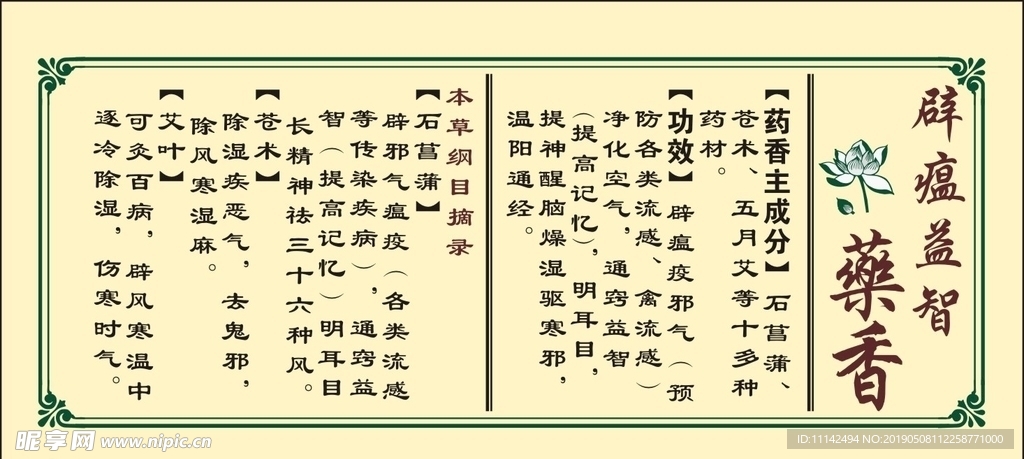 辟瘟益智
藥香
【药香主成分】石菖蒲、
苍术、五月艾等十多种
药材。
【功效】辟瘟疫邪气（预
防各类流感、禽流感）
净化空气，通窍益智
（提高记忆），明耳目，
提神醒脑燥湿驱寒邪，
温阳通经。
本草纲目摘录
【石菖蒲】
辟邪气瘟疫（各类流感
等传染疾病），通窍益
智（提高记忆）明耳目
长精神祛三十六种风。
【苍术】
除湿疾恶气，去鬼邪，
除风寒湿麻。
【艾叶】
可灸百病，辟风寒温中
逐冷除湿，伤寒时气。
昵享网 www.nipic.cn
ID:11142494 NO:20190508112258771000